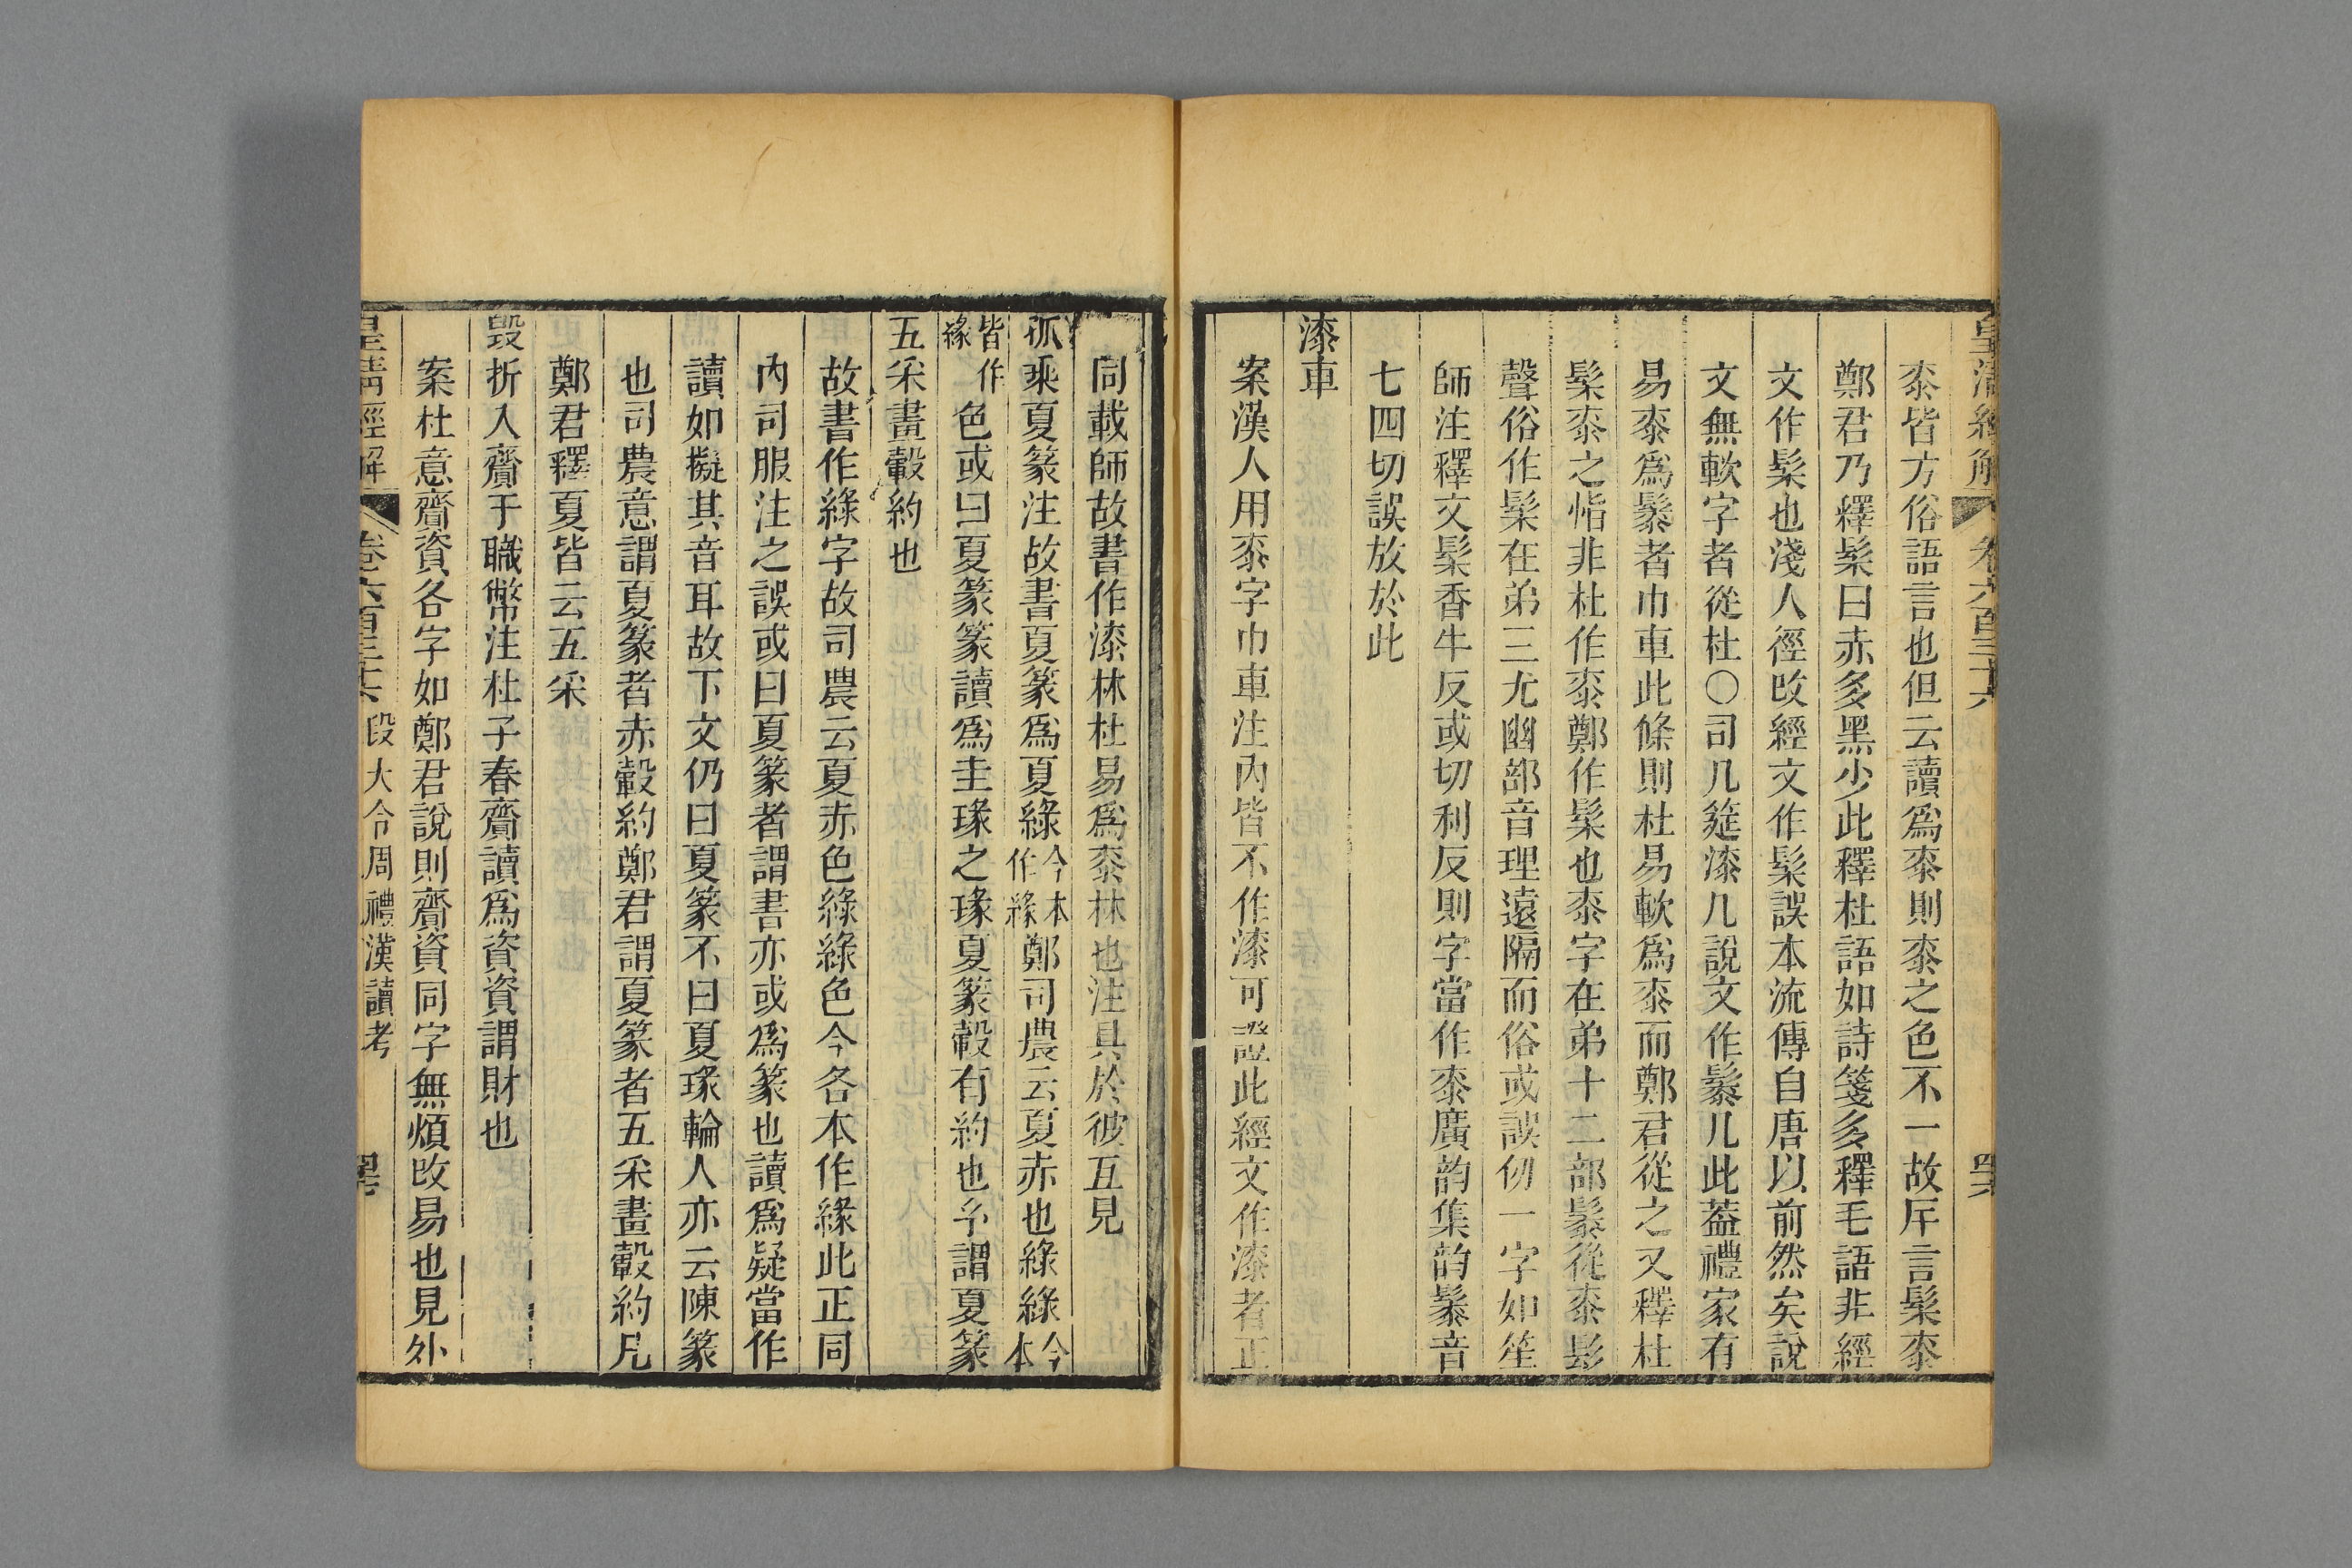 皇清經解
卷六百三十六
桼皆方俗語言也但云讀爲桼則桼之色不一故㡿言髤桼
鄭君乃釋髤曰赤多黑少此釋杜語如詩箋多釋毛語非經
文作髤也淺人徑改經文作髤誤本流傳自唐以前然矣說
文無軟字者從杜〇司几筵漆几說文作䰍几此葢禮家有
易桼爲䰍者巾車此條則杜易軟爲桼而鄭君從之又釋杜
髤桼之恉非杜作桼鄭作髤也桼字在弟十二部䰍從桼髟
聲俗作髤在弟三尤幽部音理遠隔而俗或誤仞一字如笙
師注釋文髤香牛反或切利反則字當作桼廣韵集韵䰍音
七四切誤放於此
漆車
案漢人用桼字巾車注內皆不作漆可證此經文作漆者正
同載師故書作漆林杜易爲桼林也注具於彼互見
孤乘夏篆注故書夏篆爲夏綠今本作緣鄭司農云夏赤也綠綠今本
皆作緣色或曰夏篆篆讀爲圭瑑之瑑夏篆轂有約也予謂夏篆
五采畫轂約也
故書作綠字故司農云夏赤色綠綠色今各本作緣此正同
內司服注之誤或曰夏篆者謂書亦或爲篆也讀爲疑當作
讀如擬其音耳故下文仍曰夏篆不曰夏瑑輪人亦云陳篆
也司農意謂夏篆者赤轂約鄭君謂夏篆者五采畫轂約凡
鄭君釋夏皆云五采
毀折入齎于職幣注杜子春齎讀爲資資謂財也
案杜意齎資各字如鄭君說則齎資同字無煩改易也見外
皇清經解
卷六百三十六
段大令周禮漢讀考